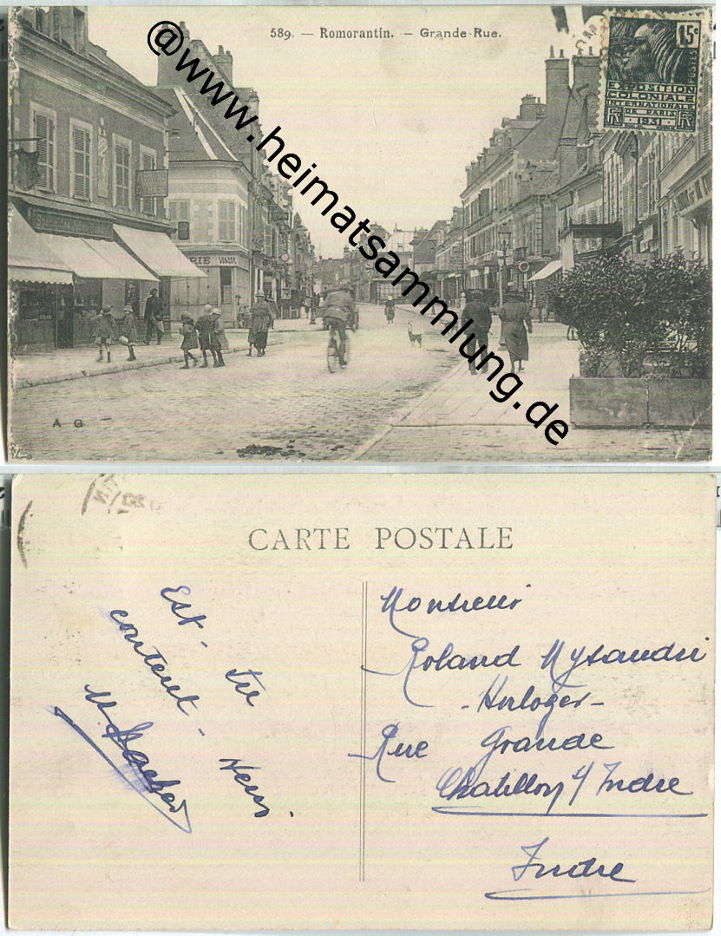 589. — Romorantin. — Grande-Rue.
15c
POSTES
EXPOSITION
COLONIALE
INTERNATIONALE
DE PARIS
1931
RF RF
www.heimatsammlung.de
RIE
A G
CARTE POSTALE
Est-tu
content - Hein
M.
Monsieur
Roland Mysandri
- Horloger -
Rue Grande
Chatillon s/ Indre
Indre